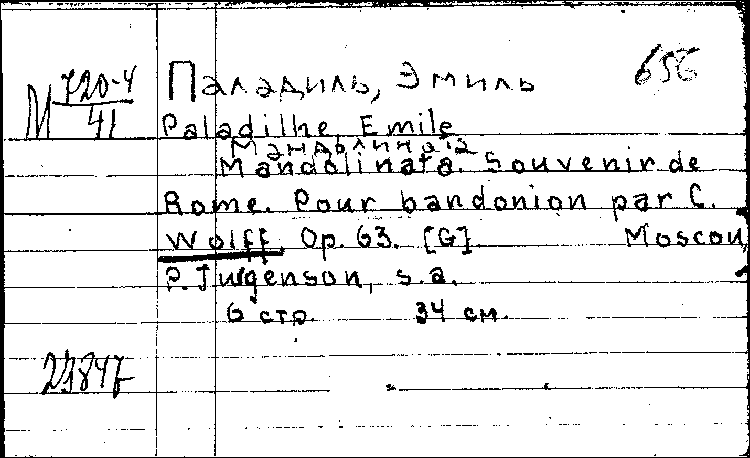 М 720-4
41
Паладиль, Эмиль
656
Paladilhe, Emile
Мандолината
Mandolinata. Souvenir de
Rome. Pour bandonion par C.
Wolff. Op. 63. [G] Moscou,
P. Jurgenson, s.a.
6 стр. 34 см.